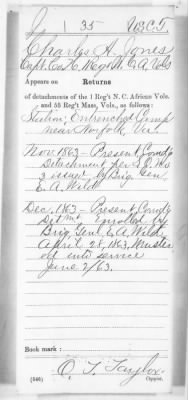 J | 35 | U.S.C.T.
Charles A. Jones
Capt., Co. H, Reg't N.C. A. Vols
Appears on Returns
of detachments of the 1 Reg't N. C. African Vols.
and 55 Reg't Mass. Vols., as follows:
Station: Entrenched Camp
near Norfolk, Va.
Nov. 1863 – Present, Comd'g
Detachment, Gen. S. O. No
2 issued by Brig. Gen.
E. A. Wild
Dec. 1863 – Present, Comd'g
Det mt. Enrolled by
Brig. Genl. E. A. Wild,
April 28, 1863, Muster
ed into service
June 2/63.
Book mark:
O. T. Taylor
(546) Copyist.